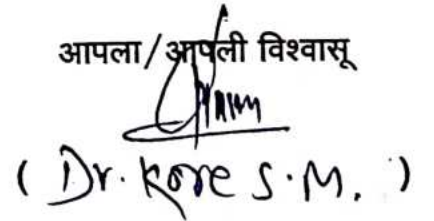 आपला/आपली विश्वासू
( Dr. Kore S.M. )